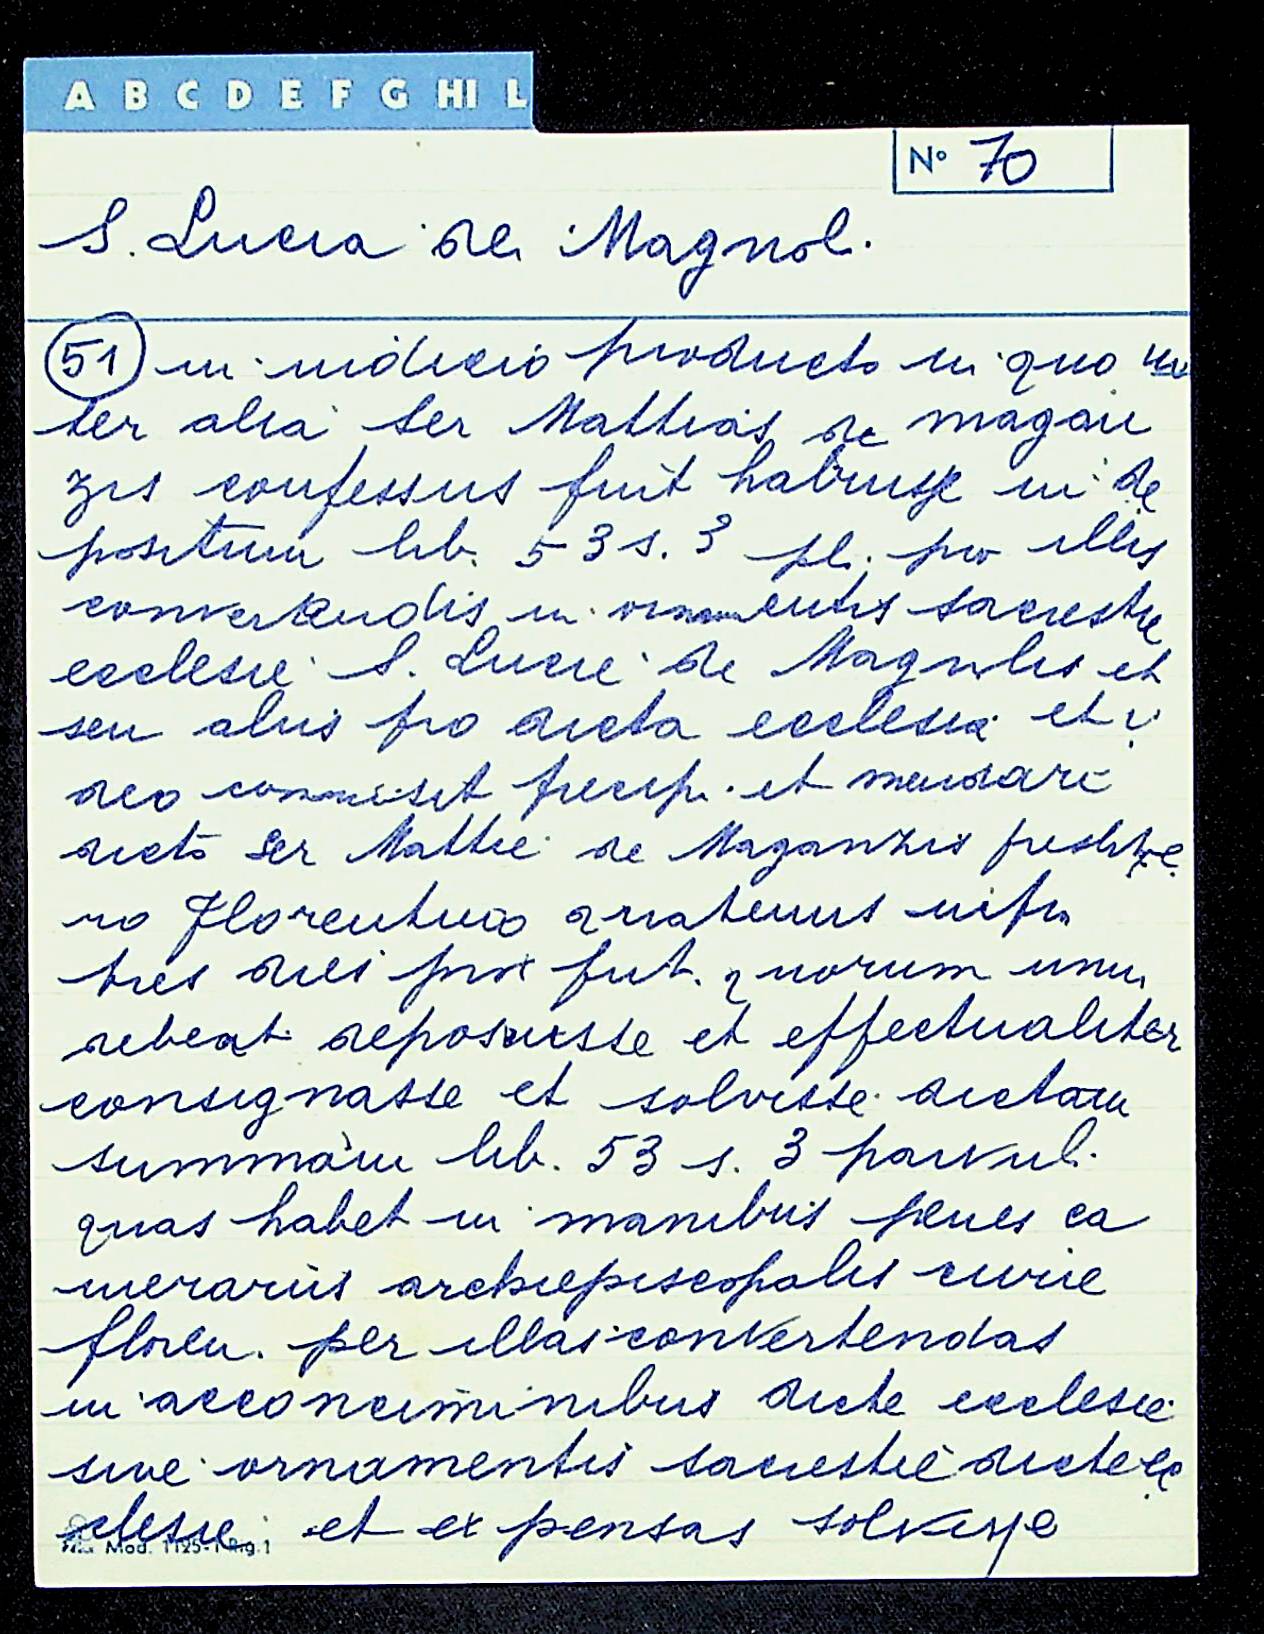 A B C D E F G HI L
N° 70
S. Lucia de Magnol.
51 in iudicio producto in quo in
ter alia ser Mattias de magan
zis confessus fuit habuisse in de
positum lib. 53 s. 3 pl. pro illis
convertendis in ornamentis sacrestie
ecclesie S. Lucie de Magnolis et
seu aliis pro dicta ecclesia et i
deo commisit precip. et mandari
dicto ser Mattie de Maganzis presbite
ro Florentino quatenus infra
tres dies prox fut. quorum unu
debeat deposuisse et effectualiter
consignasse et solvisse dictam
summam lib. 53 s. 3 parvul.
quas habet in manibus penes ca
merarius archiepiscopalis curie
floren. per illas convertendas
in acconciminibus dicte ecclesie
sive ornamentis sacrestie dicte ec
clesie et expensas solvisse
Mod. 1125-1 Rig.1